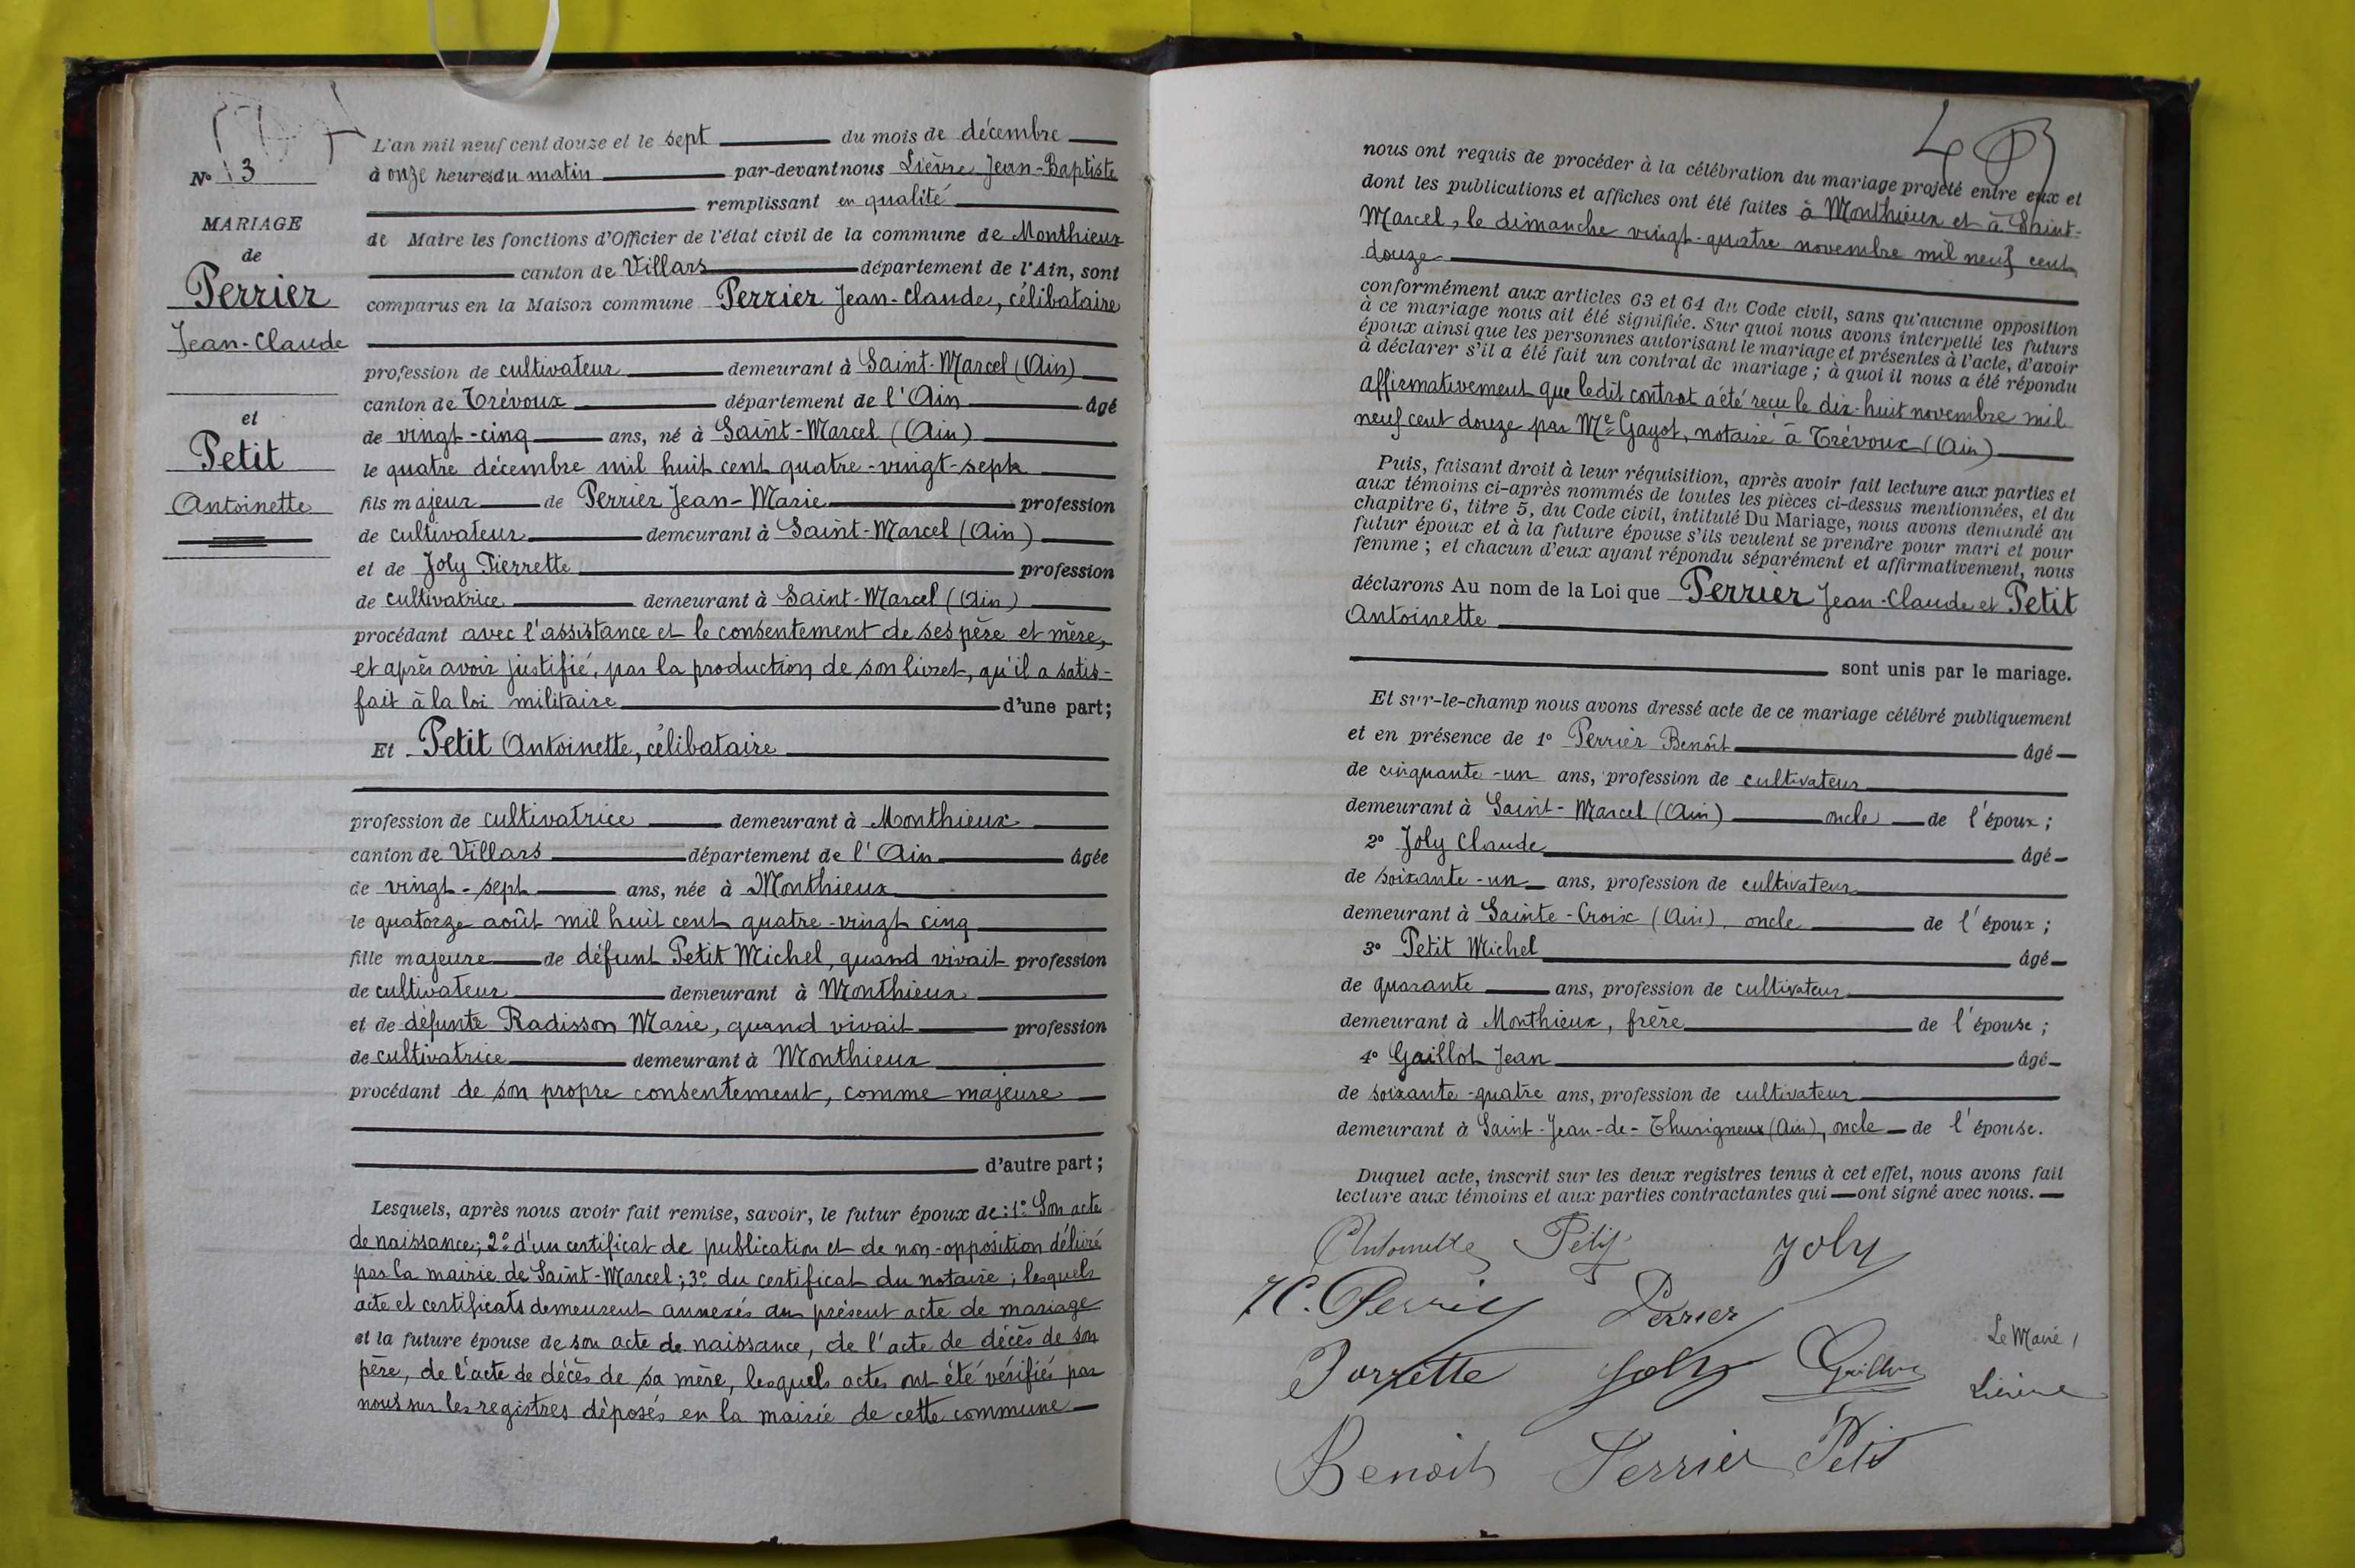 N° 3
MARIAGE
de
Perrier
Jean-Claude
et
Petit
Antoinette
L'an mil neuf cent douze et le sept du mois de décembre
à onze heures du matin par-devant nous Lièvre Jean-Baptiste
remplissant en qualité
de Maire les fonctions d'Officier de l'état civil de la commune de Monthieux
canton de Villars département de l'Ain, sont
comparus en la Maison commune Perrier Jean-Claude, célibataire
profession de cultivateur demeurant à Saint-Marcel (Ain)
canton de Trévoux département de l'Ain âgé
de vingt-cinq ans, né à Saint-Marcel (Ain)
le quatre décembre mil huit cent quatre-vingt-sept
fils majeur de Perrier Jean-Marie profession
de cultivateur demeurant à Saint-Marcel (Ain)
et de Joly Pierrette profession
de cultivatrice demeurant à Saint-Marcel (Ain)
procédant avec l'assistance et le consentement de ses père et mère,
et après avoir justifié, par la production de son livret, qu'il a satis-
fait à la loi militaire d'une part;
Et Petit Antoinette, célibataire
profession de cultivatrice demeurant à Monthieux
canton de Villars département de l'Ain âgée
de vingt-sept ans, née à Monthieux
le quatorze août mil huit cent quatre-vingt cinq
fille majeure de défunt Petit Michel, quand vivait profession
de cultivateur demeurant à Monthieux
et de défunte Radisson Marie, quand vivait profession
de cultivatrice demeurant à Monthieux
procédant de son propre consentement, comme majeure
d'autre part;
Lesquels, après nous avoir fait remise, savoir, le futur époux de: 1° Son acte
de naissance; 2° d'un certificat de publication et de non-opposition délivré
par la mairie de Saint-Marcel; 3° du certificat du notaire; lesquels
acte et certificats demeurent annexés au présent acte de mariage
et la future épouse de son acte de naissance, de l'acte de décès de son
père, de l'acte de décès de sa mère, lesquels actes ont été vérifiés par
nous sur les registres déposés en la mairie de cette commune
nous ont requis de procéder à la célébration du mariage projeté entre eux et
dont les publications et affiches ont été faites à Monthieux et à Saint-
Marcel, le dimanche vingt-quatre novembre mil neuf cent
douze
conformément aux articles 63 et 64 du Code civil, sans qu'aucune opposition
à ce mariage nous ait été signifiée. Sur quoi nous avons interpellé les futurs
époux ainsi que les personnes autorisant le mariage et présentes à l'acte, d'avoir
à déclarer s'il a été fait un contrat de mariage; à quoi il nous a été répondu
affirmativement que ledit contrat a été reçu le dix-huit novembre mil
neuf cent douze par Me Gayot, notaire à Trévoux (Ain)
Puis, faisant droit à leur réquisition, après avoir fait lecture aux parties et
aux témoins ci-après nommés de toutes les pièces ci-dessus mentionnées, et du
chapitre 6, titre 5, du Code civil, intitulé Du Mariage, nous avons demandé au
futur époux et à la future épouse s'ils veulent se prendre pour mari et pour
femme; et chacun d'eux ayant répondu séparément et affirmativement, nous
déclarons Au nom de la Loi que Perrier Jean-Claude et Petit
Antoinette
sont unis par le mariage.
Et sur-le-champ nous avons dressé acte de ce mariage célébré publiquement
et en présence de 1° Perrier Benoît âgé
de cinquante-un ans, profession de cultivateur
demeurant à Saint-Marcel (Ain) oncle de l'époux;
2° Joly Claude âgé
de soixante-un ans, profession de cultivateur
demeurant à Sainte-Croix (Ain), oncle de l'époux;
3° Petit Michel âgé
de quarante ans, profession de cultivateur
demeurant à Monthieux, frère de l'épouse;
4° Gaillot Jean âgé
de soixante-quatre ans, profession de cultivateur
demeurant à Saint-Jean-de-Thurigneux (Ain), oncle de l'épouse.
Duquel acte, inscrit sur les deux registres tenus à cet effet, nous avons fait
lecture aux témoins et aux parties contractantes qui ont signé avec nous.
Antoinette Petit Joly
J C. Perrier Perrier
Le Maire,
Joly Gaillot Lièvre
Benoit Perrier Petit